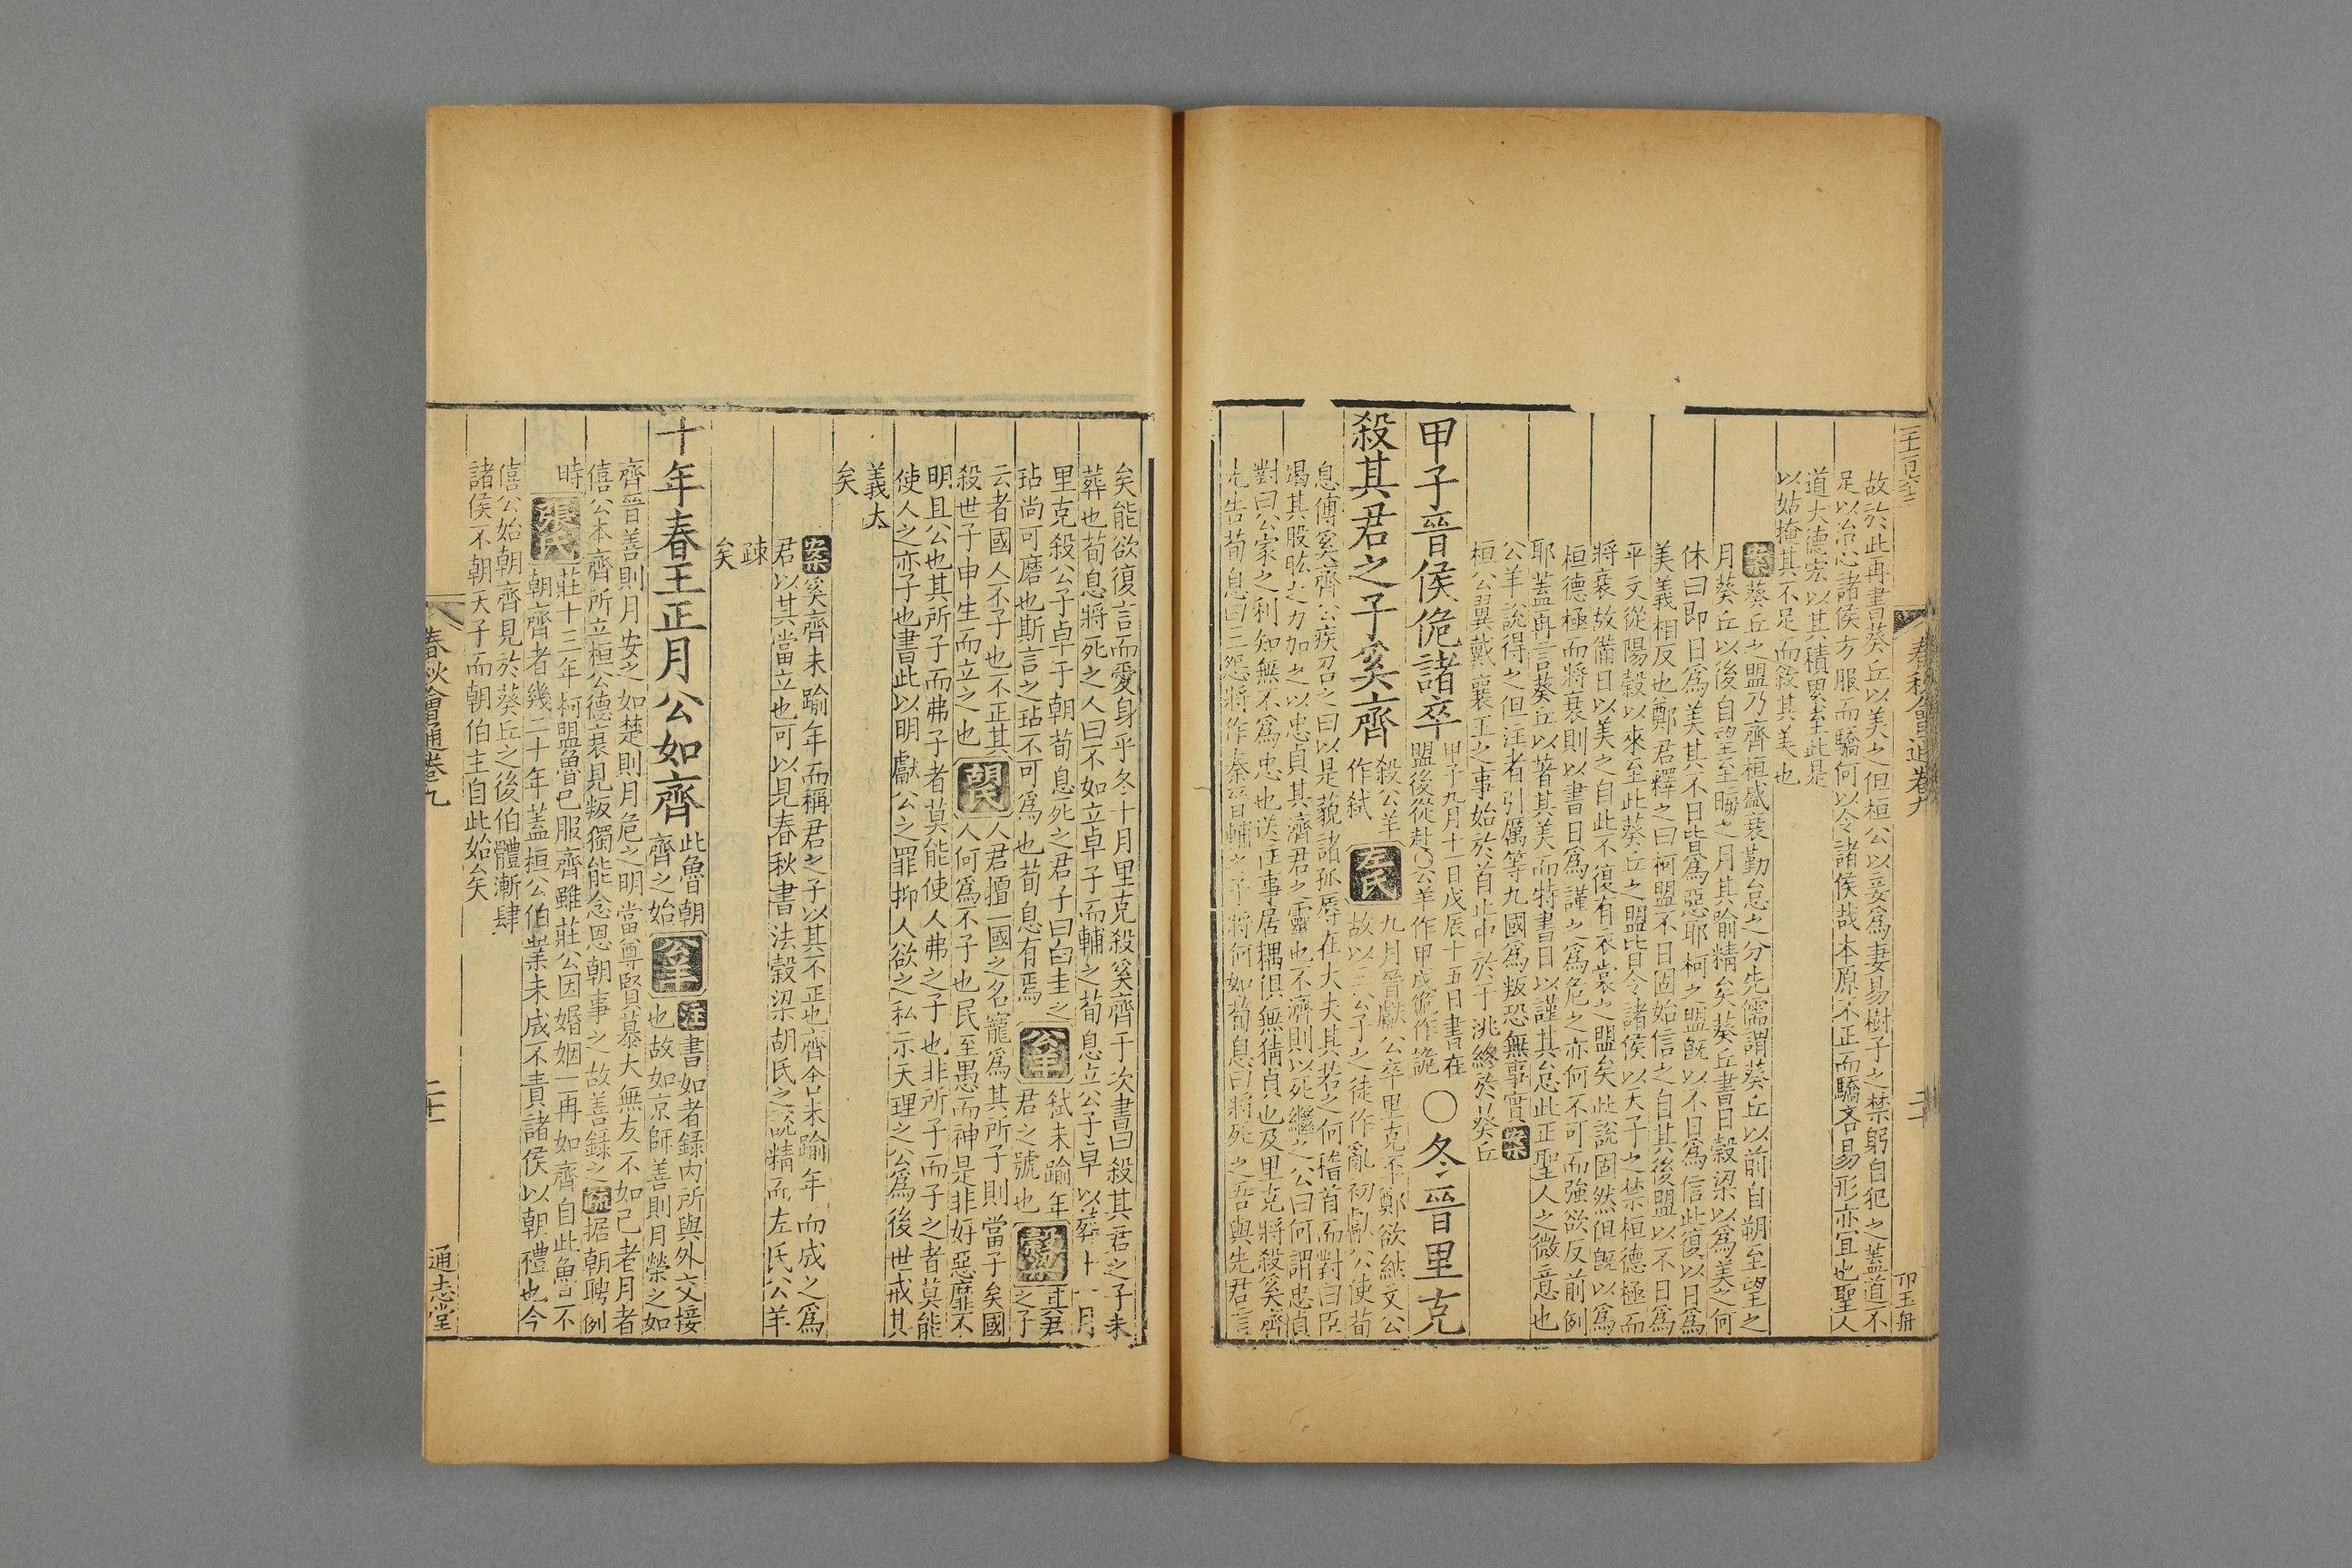 春秋會通卷九
故於此再書葵丘以美之但桓公以妾爲妻易樹子之禁躬自犯之蓋道不
足以治心諸侯方服而驕何以令諸侯哉本原不正而驕吝易形亦宜也聖人
道大德宏以其積累至此是
以姑掩其不足而敘其美也
案葵丘之盟乃齊桓盛衰勤怠之分先儒謂葵丘以前自朔至望之
月葵丘以後自望至晦之月其喻精矣葵丘書日穀梁以爲美之何
休曰即日爲美其不日皆爲惡耶柯之盟旣以不日爲信此復以日爲
美義相反也鄭君釋之曰柯盟不日固始信之自其後盟以不日爲
平文從陽穀以來至此葵丘之盟皆令諸侯以天子之禁桓德極而
將衰故備日以美之自此不復有衣裳之盟矣此說固然但旣以爲
桓德極而將衰則以書日爲謹之爲危之亦何不可而強欲反前例
耶蓋再言葵丘以著其美而特書日以謹其怠此正聖人之微意也
公羊說得之但注者引厲等九國爲叛恐無事實案
桓公翼戴襄王之事始於首止中於于洮終於葵丘
甲子晉侯佹諸卒
甲子九月十一日戊辰十五日書在
盟後從赴〇公羊作甲戌佹作詭
〇冬晉里克
殺其君之子奚齊
殺公羊
作弑
左氏
九月晉獻公卒里克丕鄭欲納文公
故以三公子之徒作亂初獻公使荀
息傅奚齊公疾召之曰以是藐諸孤辱在大夫其若之何稽首而對曰臣
竭其股肱之力加之以忠貞其濟君之靈也不濟則以死繼之公曰何謂忠貞
對曰公家之利知無不爲忠也送往事居耦俱無猜貞也及里克將殺奚齊
先告荀息曰三怨將作秦晉輔之子將何如荀息曰將死之吾與先君言
矣能欲復言而愛身乎冬十月里克殺奚齊于次書曰殺其君之子未
葬也荀息將死之人曰不如立卓子而輔之荀息立公子卓以葬十一月
里克殺公子卓于朝荀息死之君子曰白圭之
玷尚可磨也斯言之玷不可爲也荀息有焉
公羊
弑未踰年
君之號也
穀梁
其君
之子
云者國人不子也不正其
殺世子申生而立之也
胡氏
人君擅一國之名寵爲其所子則當子矣國
人何爲不子也民至愚而神是非好惡靡不
明且公也其所子而弗子者莫能使人弗之子也非所子而子之者莫能
使人之亦子也書此以明獻公之罪抑人欲之私示天理之公爲後世戒其
義大
矣
案奚齊未踰年而稱君之子以其不正也齊舍未踰年而成之爲
君以其當立也可以見春秋書法穀梁胡氏之說精而左氏公羊
疎
矣
十年春王正月公如齊
此魯朝
齊之始
公羊
注書如者錄內所與外交接
也故如京師善則月榮之如
齊晉善則月安之如楚則月危之明當尊賢慕大無友不如己者月者
僖公本齊所立桓公德衰見叛獨能念恩朝事之故善錄之疏据朝聘例
時
張氏
莊十三年柯盟魯已服齊雖莊公因婚姻一再如齊自此魯不
朝齊者幾二十年蓋桓公伯業未成不責諸侯以朝禮也今
僖公始朝齊見於葵丘之後伯體漸肆
諸侯不朝天子而朝伯主自此始矣
春秋會通卷九
二十一
通志堂